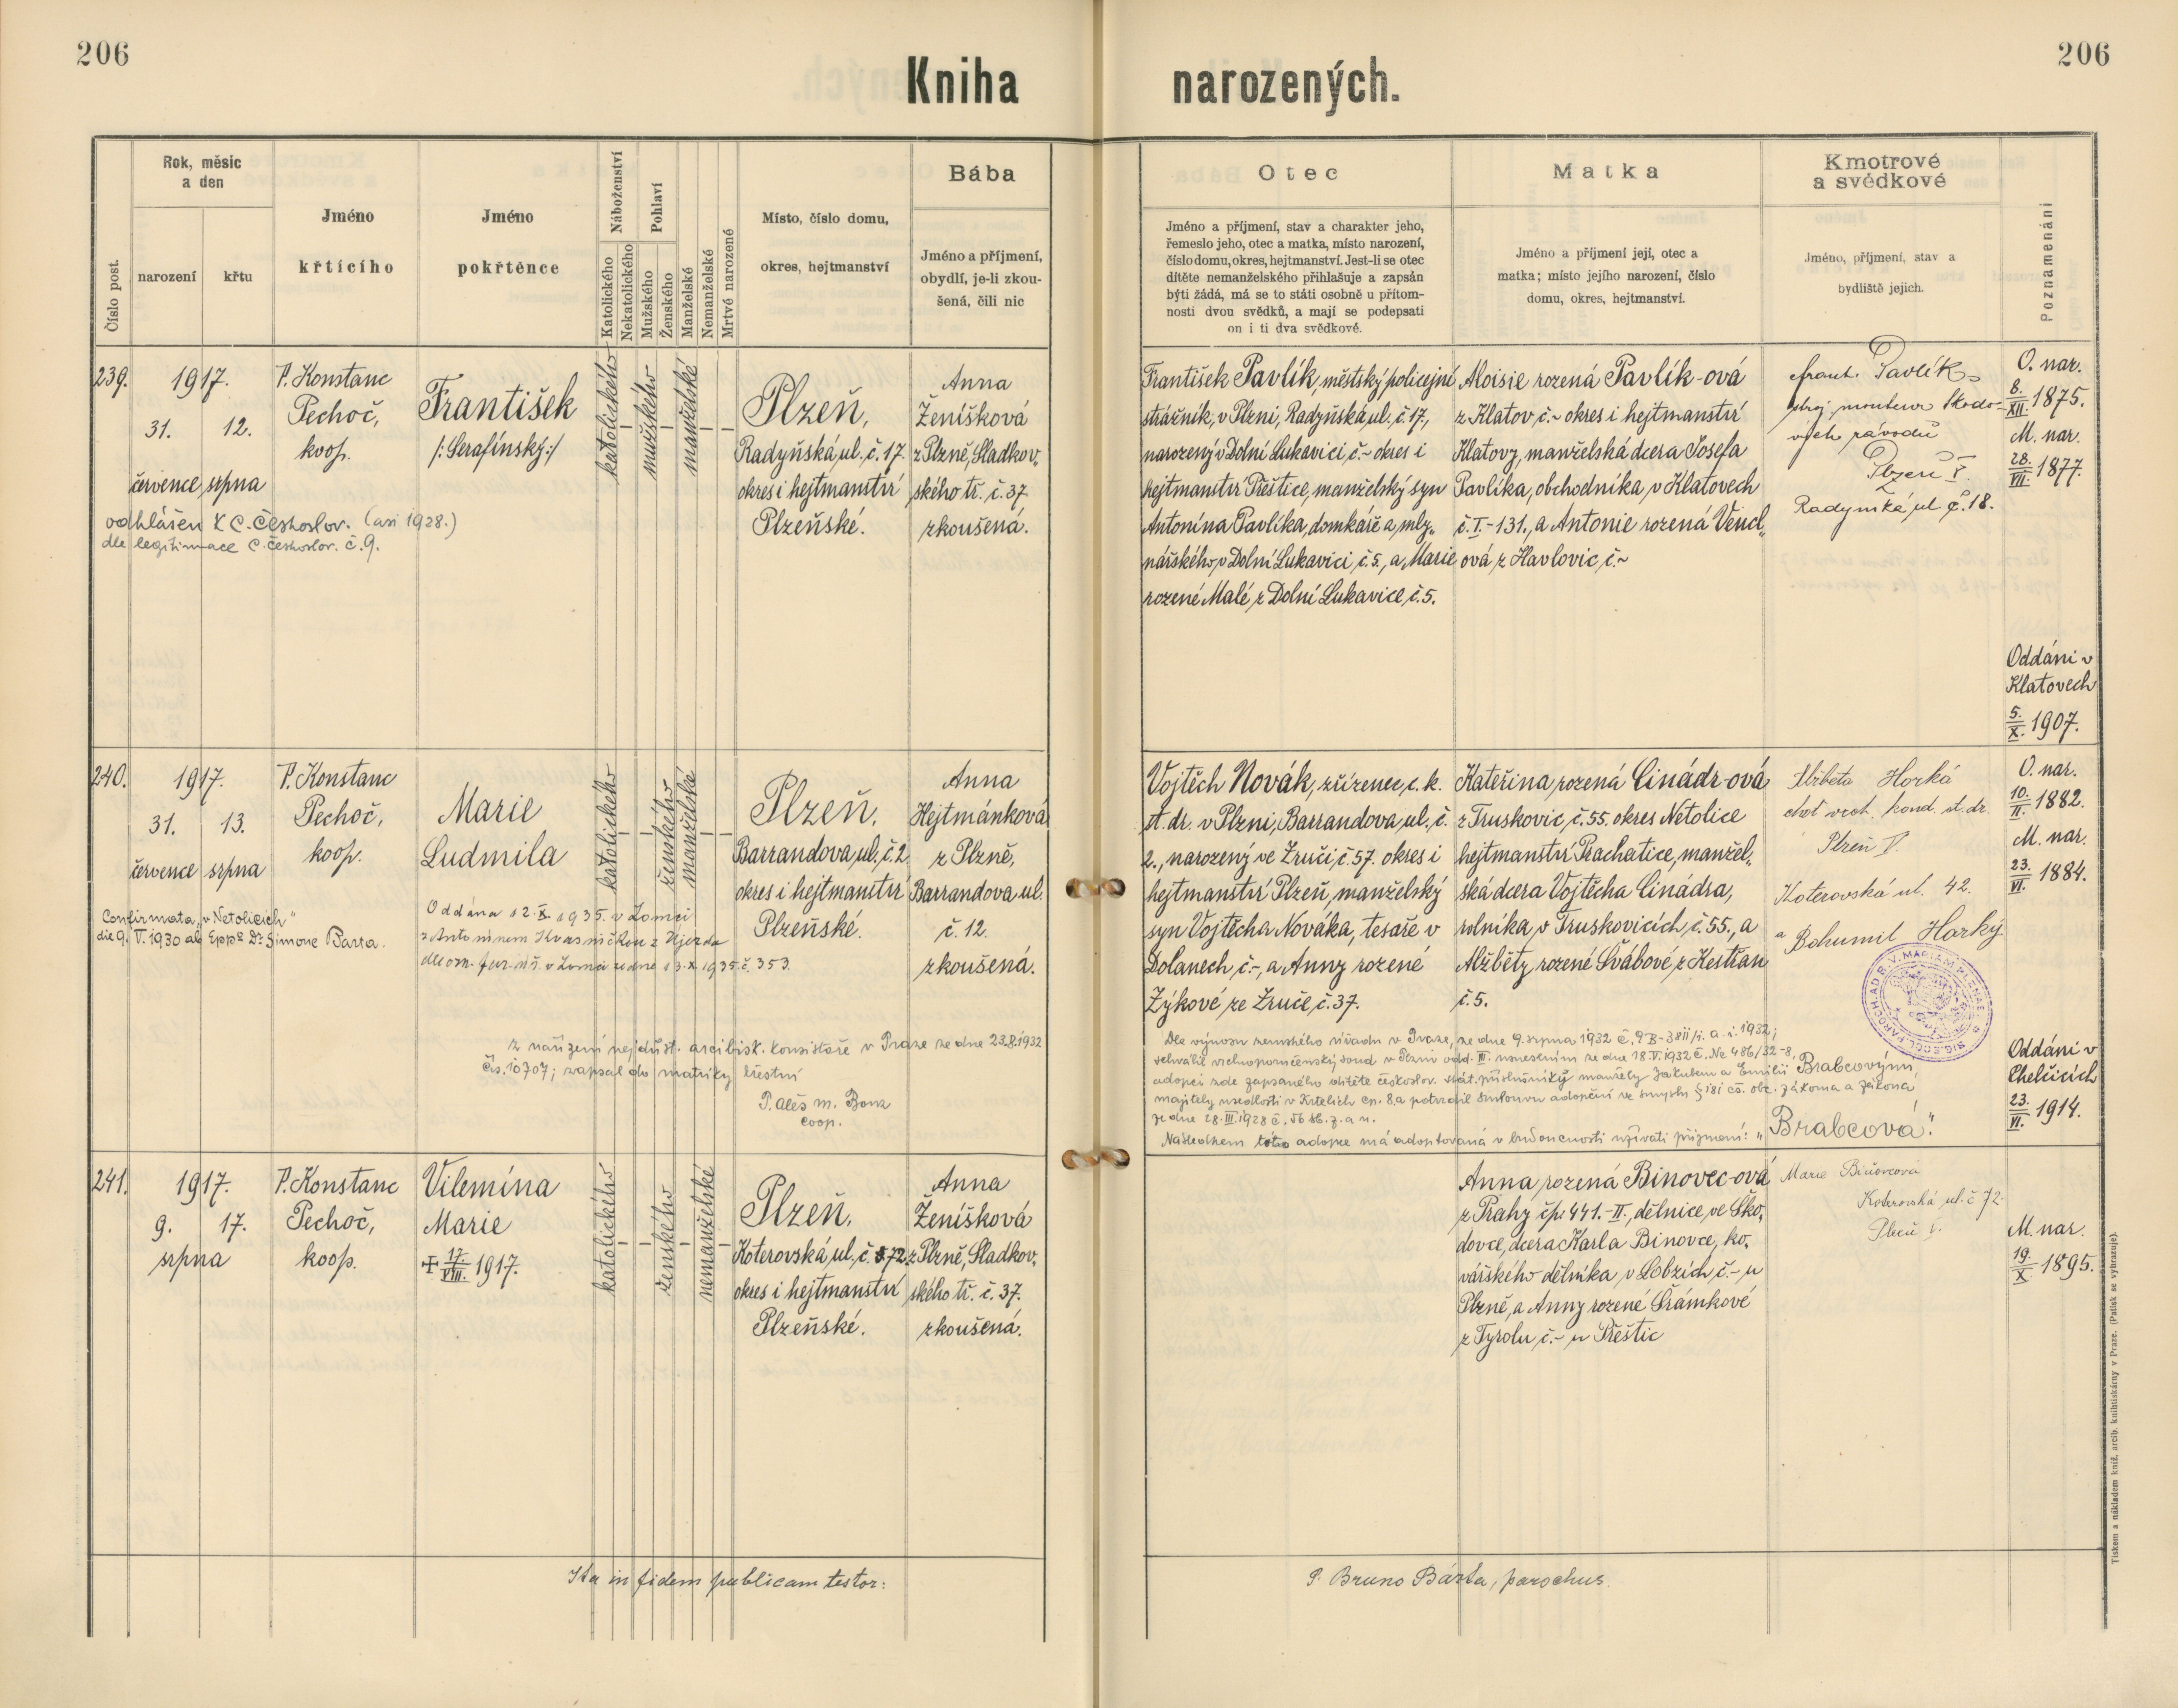 206
206
Kniha narozených.
Číslo post.
Rok, měsíc
a den
narození
křtu
Jméno
křtícího
Jméno
pokřtěnce
Náboženství
Katolického
Nekatolického
Pohlaví
Mužského
Ženského
Manželské
Nemanželské
Mrtvé narozené
Místo, číslo domu,
okres, hejtmanství
Bába
Jméno a příjmení,
obydlí, je-li zkou-
šená, čili nic
Otec
Jméno a příjmení, stav a charakter jeho,
řemeslo jeho, otec a matka, místo narození,
číslo domu, okres, hejtmanství. Jest-li se otec
dítěte nemanželského přihlašuje a zapsán
býti žádá, má se to státi osobně u přítom-
nosti dvou svědků, a mají se podepsati
on i ti dva svědkové.
Matka
Jméno a příjmení její, otec a
matka; místo jejího narození, číslo
domu, okres, hejtmanství.
Kmotrové
a svědkové
Jméno, příjmení, stav a
bydliště jejich.
Poznamenání
239.
1917.
31. 12.
července srpna
P. Konstanc
Pechoč,
koop.
František
/:Serafínský:/
katolického
mužského
manželské
Plzeň,
Radyňská ul. č. 17.
okres i hejtmanství
Plzeňské.
Anna
Ženíšková
z Plzně, Sladkov„
ského tř. č. 37
zkoušená.
odhlášen k C. českoslov. (asi 1928.)
dle legitimace C. českoslov. č. 9.
František Pavlík, městský policejní
strážník, v Plzni, Radyňská ul. č. 17.,
narozený v Dolní Lukavici č. ~ okres i
hejtmanství Přeštice, manželský syn
Antonína Pavlíka, domkáře a mly„
nářského, v Dolní Lukavici č. 5., a Marie
rozené Malé z Dolní Lukavice, č. 5.
Aloisie rozená Pavlík-ová
z Klatov č. ~ okres i hejtmanství
Klatovy, manželská dcera Josefa
Pavlíka, obchodníka v Klatovech
č. I.-131., a Antonie rozená Vencl„
ová z Havlovic, č. ~
Frant. Pavlík
stroj. monteur Škodo-
vých závodů
Plzeň V.
Radyňská ul. č. 18.
O. nar.
8./XII. 1875.
M. nar.
28./VII. 1877.
Oddáni v
Klatovech
5./X. 1907.
240.
1917.
31. 13.
července srpna
P. Konstanc
Pechoč,
koop.
Marie
Ludmila
katolického
ženského
manželské
Plzeň,
Barrandova ul. č. 2
okres i hejtmanství
Plzeňské.
Anna
Hejtmánková
z Plzně,
Barrandova ul.
č. 12.
zkoušená.
Confirmata „v Netolicích"
die 9. V. 1930 ab Eppo Dr Simone Bárta.
Oddána 12. X. 1935. v Lomci
z Antonínem Kvasničkou z Újezda
dle ozn. far. úř. v Lomci ze dne 13. X. 1935. č. 353.
z nařízení nejdůst. arcibisk. konsistoře v Praze ze dne 23.8.1932
čís. 10707; zapsal do matriky křestní
P. Aleš M. Bonz
coop.
Vojtěch Novák, zřízenec c. k.
st. dr. v Plzni, Barrandova ul. č.
2., narozený ve Zruči, č. 57. okres i
hejtmanství Plzeň, manželský
syn Vojtěcha Nováka, tesaře v
Dolanech, č. -, a Anny rozené
Zýkové ze Zruče, č. 37.
Kateřina rozená Cinádr-ová
z Truskovic, č. 55. okres Netolice
hejtmanství Prachatice, manžel„
ská dcera Vojtěcha Cinádra,
rolníka v Truskovicích, č. 55., a
Alžběty, rozené Švábové z Kestřan
č. 5.
Alžběta Horká
choť vrch. kond. st. dr.
Plzeň V.
Koterovská ul. 42.
a Bohumil Horký
O. nar.
10./II. 1882.
M. nar.
23./VI. 1884.
Dle výnosu zemského úřadu v Praze, ze dne 9. srpna 1932 č. 9 B-3811/1. a. i. 1932;
schválil vrchnoporučenský soud v Plzni odd. III. usnesením ze dne 18. V. 1932 č. Nc 486/32-8,
adopci zde zapsaného dítěte českoslov. stát. příslušníky manžely Jakubem a Emilií Brabcovými,
majitely usedlosti v Krtelích čp. 8, a potvrdil smlouvu adopční ve smyslu § 181 čs. obč. zákona a zákona
ze dne 28. III. 1928 č. 56 sb. z. a n.
Následkem této adopce má adoptovaná v budoucnosti užívati příjmení: „Brabcová."
Oddáni v
Chelčicích
23./VI. 1914.
241.
1917.
9. 17.
srpna
P. Konstanc
Pechoč,
koop.
Vilemína
Marie
✠ 17./VIII. 1917.
katolického
ženského
nemanželské
Plzeň,
Koterovská ul. č. 72
okres i hejtmanství
Plzeňské.
Anna
Ženíšková
z Plzně, Sladkov„
ského tř. č. 37.
zkoušená.
Anna rozená Binovec-ová
z Prahy čp. 441.-II., dělnice ve Ško„
dovce, dcera Karla Binovce, ko„
vářského dělníka v Lobzích, č. - u
Plzně, a Anny rozené Šrámkové
z Tyrolu č. - u Přeštic
Marie Binovcová
Koterovská ul. č 72.
Plzeň V.
M. nar.
19./X. 1895.
Ita in fidem publicam testor:
P. Bruno Bárta, parochus.
Tiskem a nákladem kníž. arcib. knihtiskárny v Praze. (Patisk se vyhrazuje).